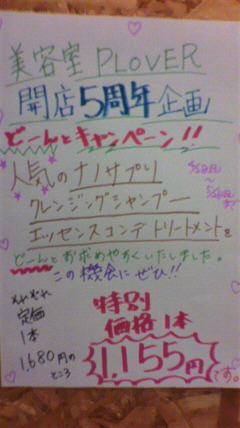 美容室 PLOVER
開店5周年企画
どーんとキャンペーン!!
人気のナノサプリ
クレンジングシャンプー
エッセンスコンデトリートメントを
どーんとお求めやすくいたしました。
この機会にぜひ!!
それぞれ
定価
1本
1,680円の
ところ
特別
価格1本
1,155円
です。